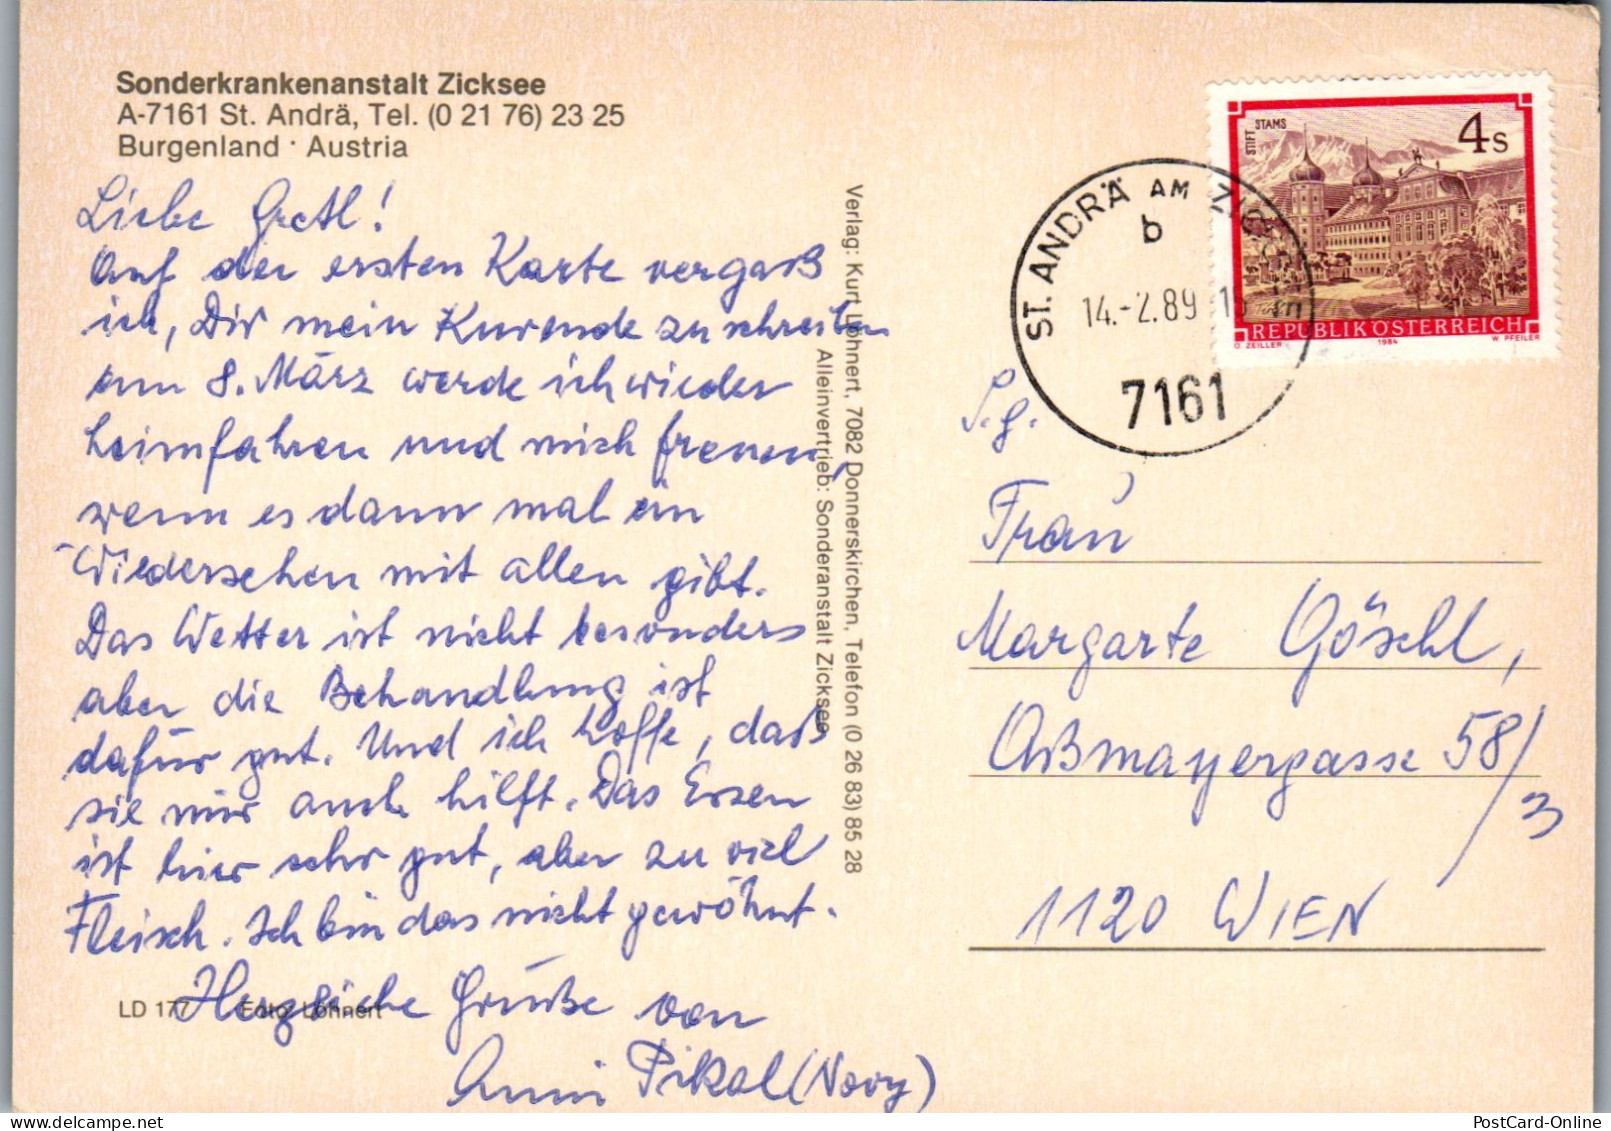 Sonderkrankenanstalt Zicksee
A-7161 St. Andrä, Tel. (0 21 76) 23 25
Burgenland · Austria
Liebe Gretl!
Auf der ersten Karte vergaß
ich, Dir mein Kurende zu schreiben
am 8. März werde ich wieder
heimfahren und mich freuen,
wenn es dann mal ein
Wiedersehen mit allen gibt.
Das Wetter ist nicht besonders
aber die Behandlung ist
dafür gut. Und ich hoffe, daß
sie mir auch hilft. Das Essen
ist hier sehr gut, aber zu viel
Fleisch. Ich bin das nicht gewöhnt.
Herzliche Grüße von
Anni Pikal (Novy)
LD 177 Foto: Löhnert
Verlag: Kurt Löhnert, 7082 Donnerskirchen, Telefon (0 26 83) 85 28
Alleinvertrieb: Sonderanstalt Zicksee
ST. ANDRÄ AM ZICKSEE
b
14.-2.89
7161
STIFT STAMS
4s
REPUBLIK ÖSTERREICH
O. ZEILLER 1984 W. PFEILER
S.g.
Frau
Margarte Göschl,
Aßmayergasse 58/3
1120 WIEN
PostCard-Online